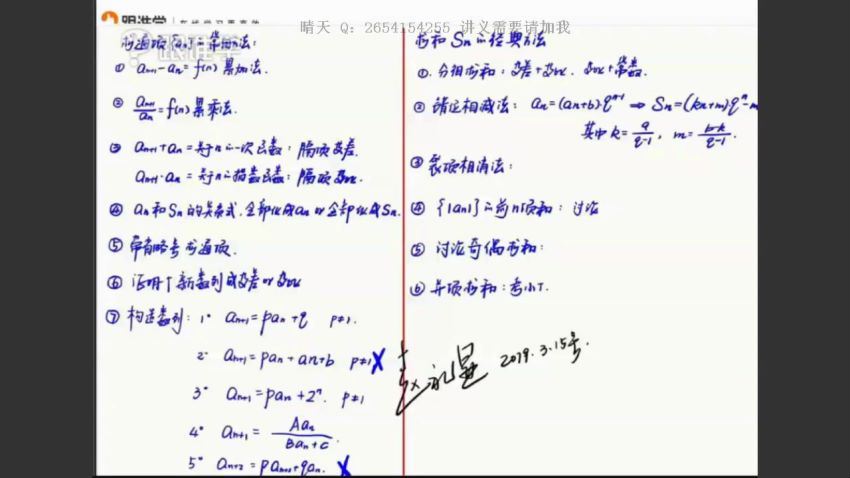 跟谁学
晴天 Q：2654154255 讲义需要请加我
求通项{an}的常用方法：
① an+1-an=f(n) 累加法.
② an+1/an=f(n) 累乘法.
③ an+1+an=关于n的一次函数：隔项等差.
an+1·an=关于n的指数函数：隔项等比.
④ an和Sn的关系式，全部化成an or 全部化成Sn.
⑤ 带省略号求通项.
⑥ 证明个新数列成等差or等比
⑦ 构造数列：1° an+1=pan+q p≠1.
2° an+1=pan+an+b p≠1 X
3° an+1=pan+2ⁿ. p≠1
4° an+1=Aan/Ban+C.
5° an+2=pan+1+qan. X
求和Sn的经典方法
①. 分组求和：等差+等比. 等比+常数.
② 错位相减法：an=(an+b)qⁿ⁻¹ ⇒ Sn=(kn+m)qⁿ-m
其中k=a/q-1, m=b-k/q-1.
③ 裂项相消法：
④ {|an|}的前n项和：讨论
⑤ 讨论奇偶求和：
⑥ 并项求和：考小T.
2019.3.15号.